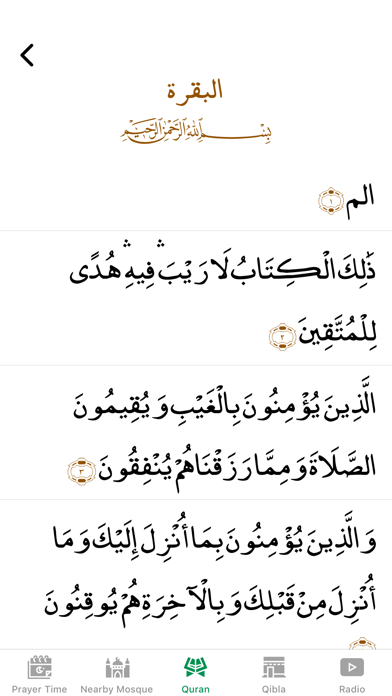 البقرة
بِسْمِ اللَّهِ الرَّحْمَٰنِ الرَّحِيمِ
الم ١
ذَٰلِكَ الْكِتَابُ لَا رَيْبَ ۛ فِيهِ ۛ هُدًى
لِلْمُتَّقِينَ ٢
الَّذِينَ يُؤْمِنُونَ بِالْغَيْبِ وَيُقِيمُونَ
الصَّلَاةَ وَمِمَّا رَزَقْنَاهُمْ يُنْفِقُونَ ٣
وَالَّذِينَ يُؤْمِنُونَ بِمَا أُنْزِلَ إِلَيْكَ وَمَا
أُنْزِلَ مِنْ قَبْلِكَ وَبِالْآخِرَةِ هُمْ يُوقِنُونَ
Prayer Time Nearby Mosque Quran Qibla Radio